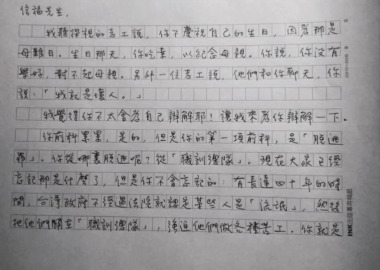 信福先生，
我聽探視的志工說，你不慶祝自己的生日，因為那是
母難日。生日那天，你吃素，以紀念母親。你說，你沒有
學好，對不起母親。另外一位志工說，他們和你聊天，你
說：「我就是壞人。」
我覺得你不太會為自己辯解耶！讓我來為你辯解一下。
你前科累累，是的，但是你的第一項前科，是「脫逃
罪」。你從哪裏脫逃呢？從「職訓總隊」。現在大家已經
忘記那是什麼了，但是你不會忘記的：有長達四十年的時
間，台灣政府不經過法院就認定某些人是「流氓」，然後
把他們關在「職訓總隊」，強迫他們做各種苦工。你就是